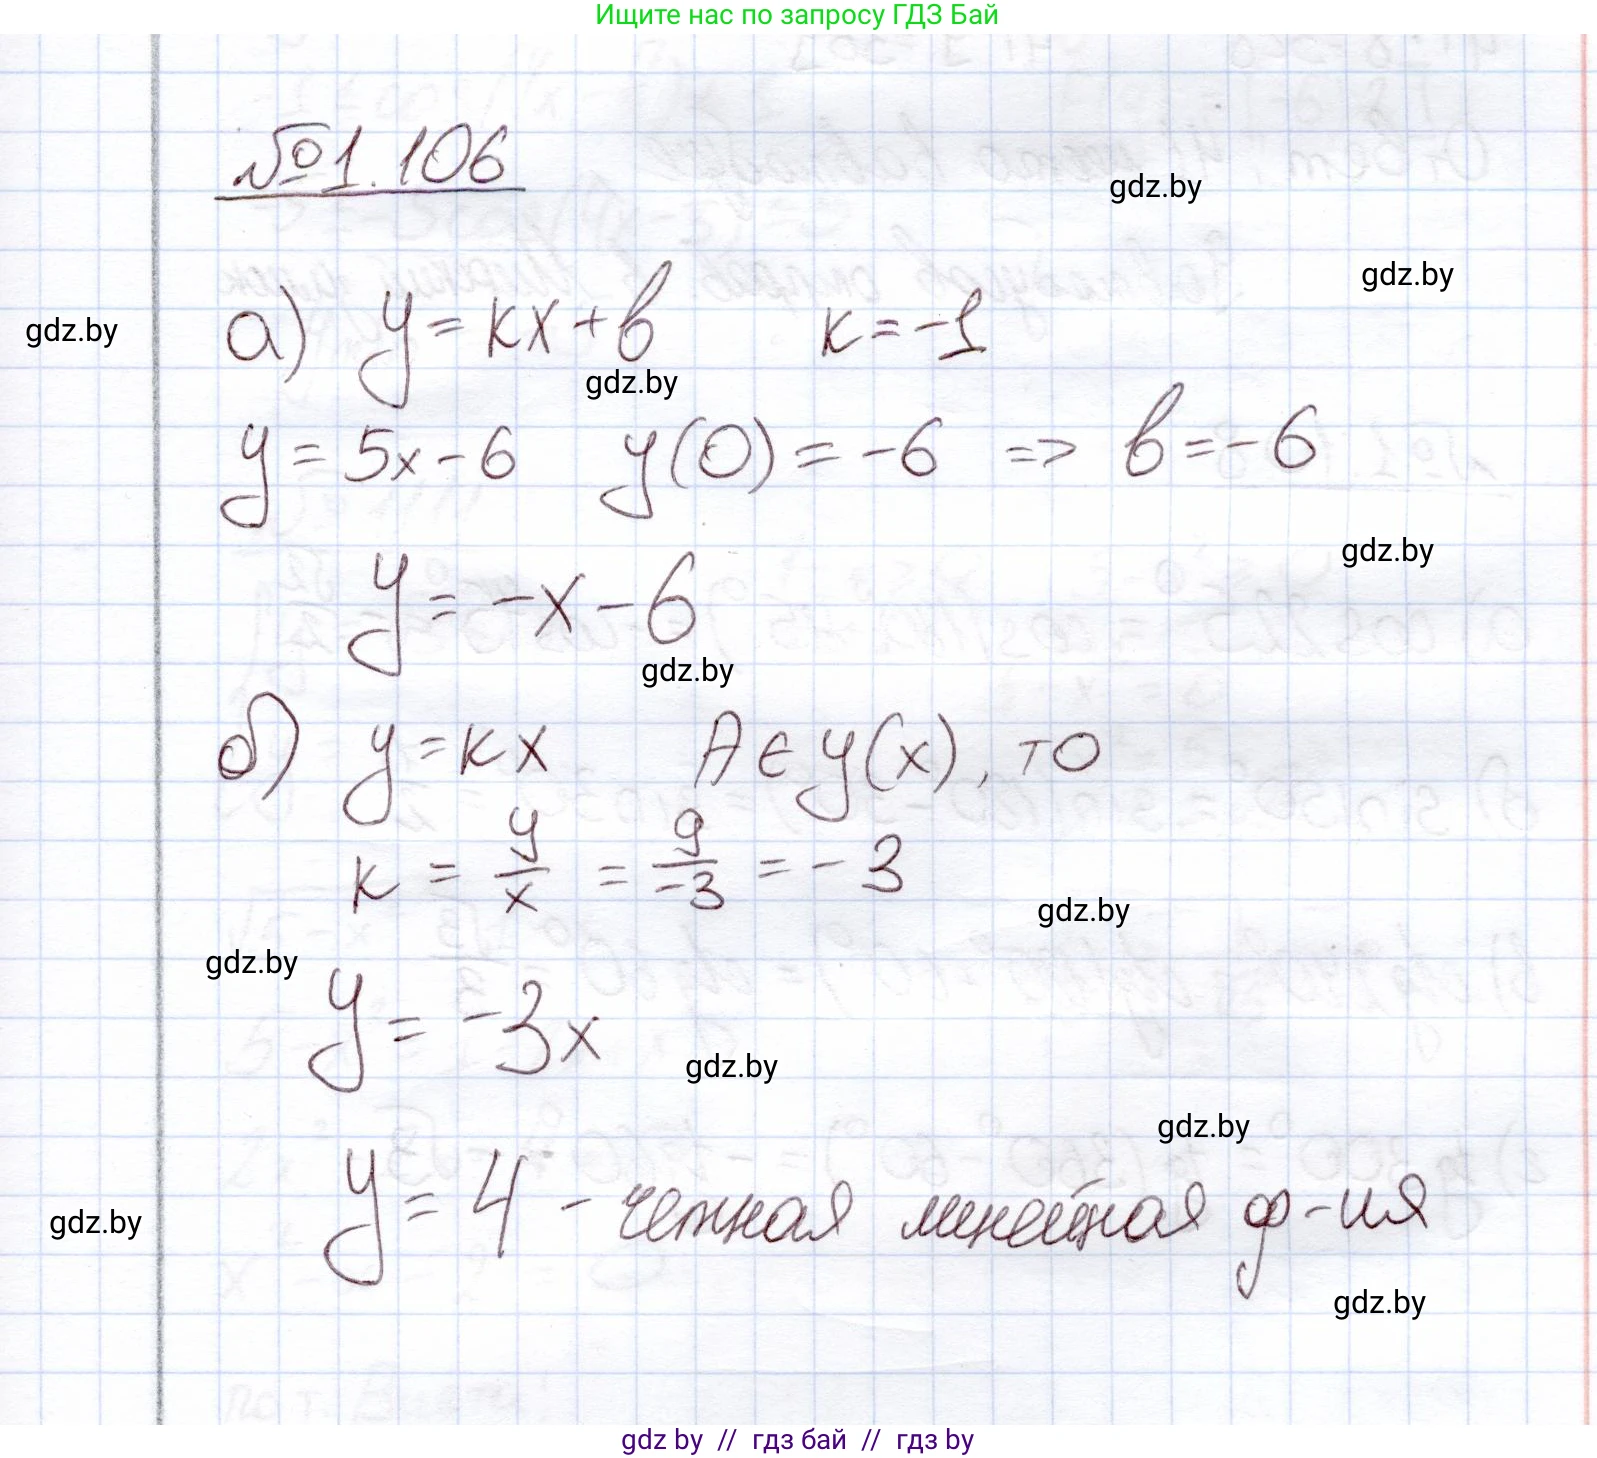 Ищите нас по запросу ГДЗ Бай
№1.106
gdz.by
gdz.by
gdz.by
а) y = kx + b   k = -1
gdz.by
y = 5x - 6   y(0) = -6 => b = -6
gdz.by
y = -x - 6
gdz.by
б) y = kx   A ∈ y(x), то
k = y/x = 9/-3 = -3
gdz.by
gdz.by
y = -3x
gdz.by
gdz.by
y = 4 - четная линейная ф-ия
gdz.by
gdz.by
gdz by // гдз бай // гдз by